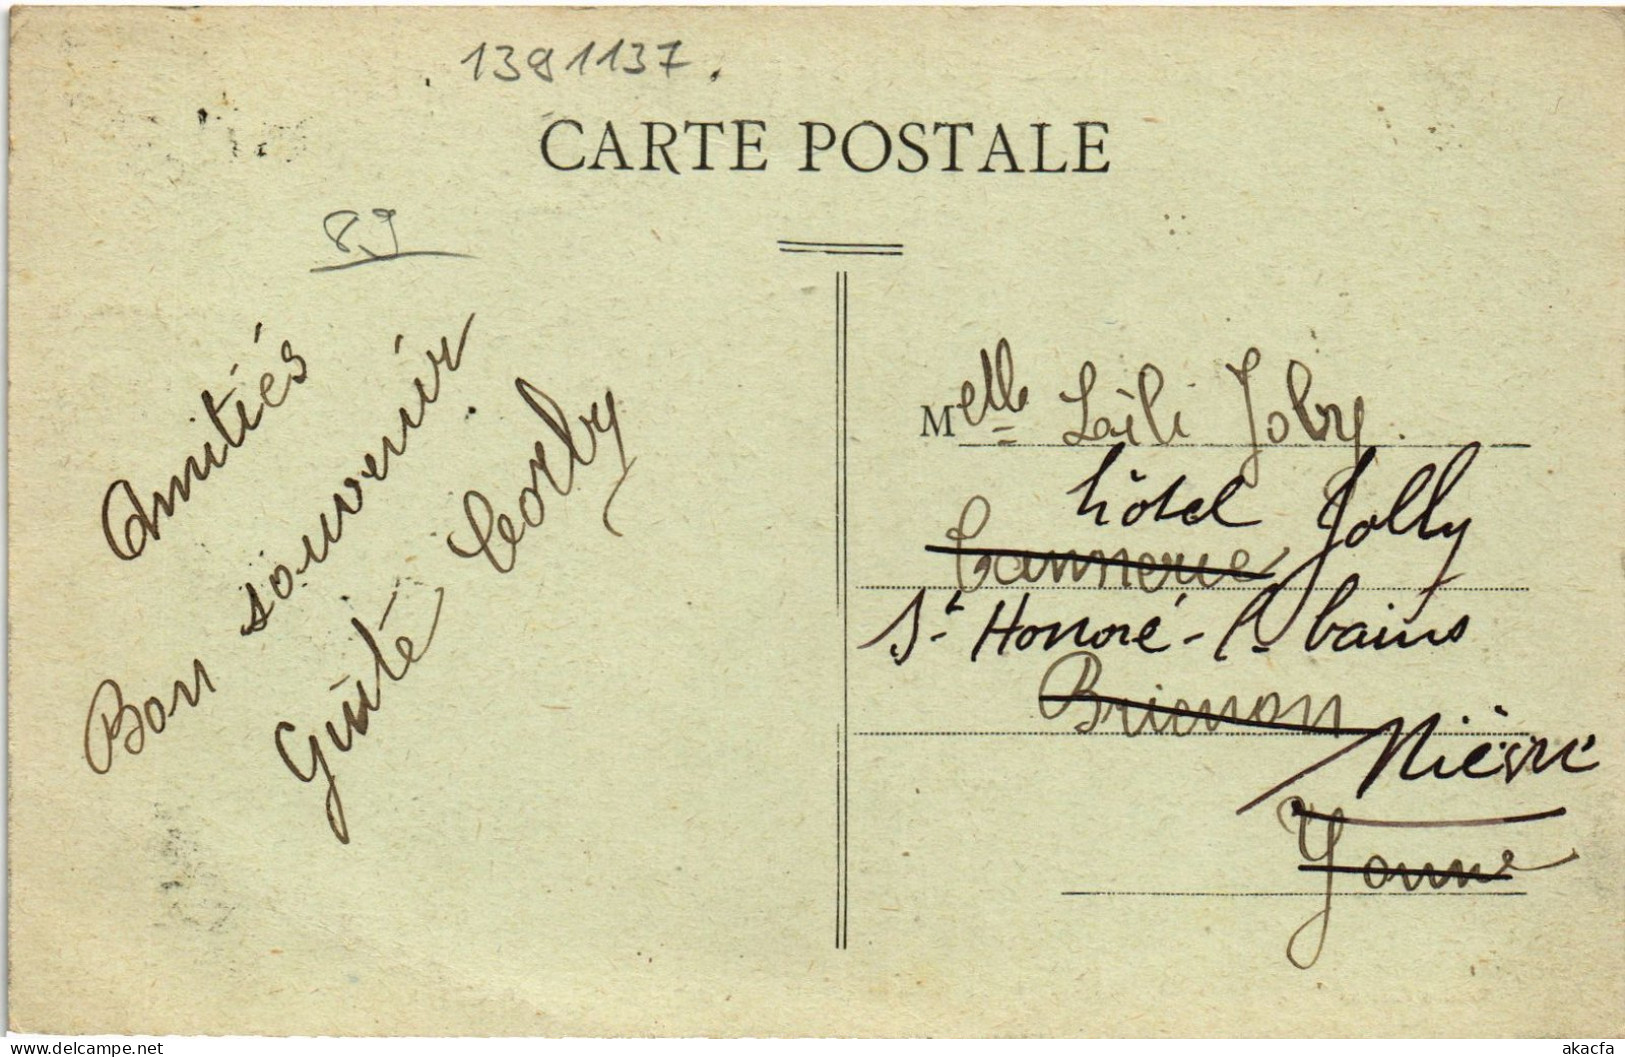 1391137
CARTE POSTALE
89
Amitiés
Bon souvenir
Guité Corby
Melle Laïli Jobry.
hôtel Jolly
Tannerie
St Honoré-l-bains
Brienon
Nièvre
Yonne
akacfa